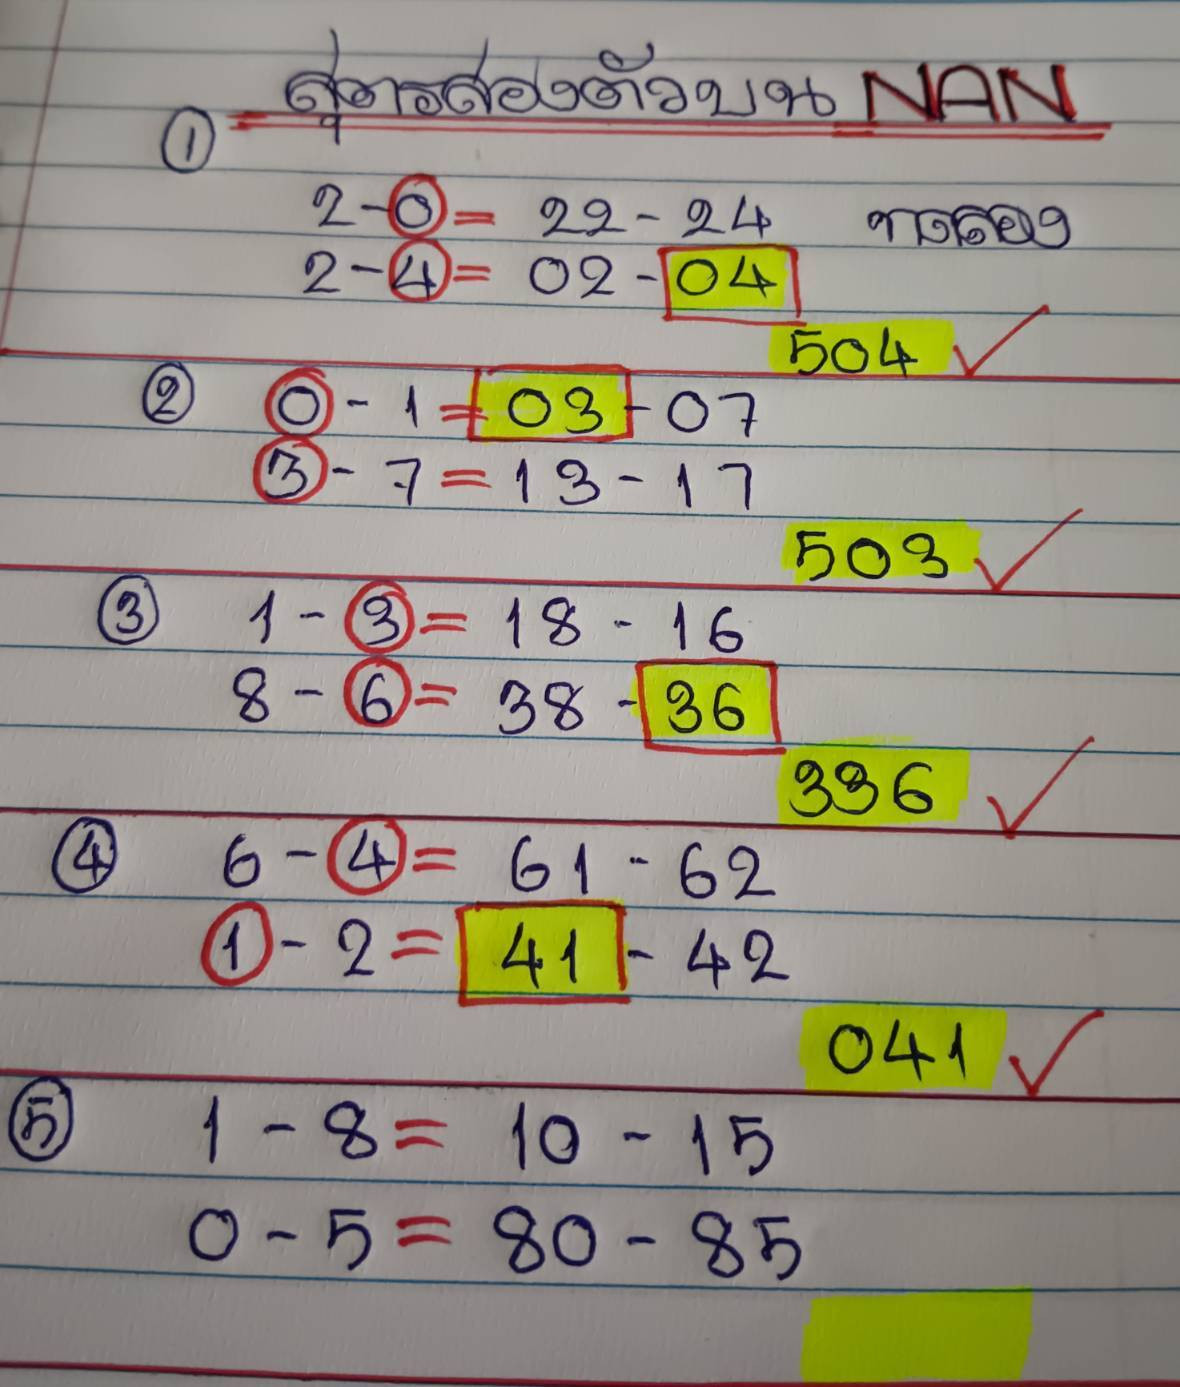 สูตรสองตัวบน NAN
①
2-0= 22-24 ทดลอง
2-4= 02-04
504 ✓
② 0-1=03-07
3-7=13-17
503 ✓
③ 1-3= 18-16
8-6= 38-36
336 ✓
④ 6-4= 61-62
1-2= 41-42
041 ✓
⑤ 1-8= 10-15
0-5= 80-85